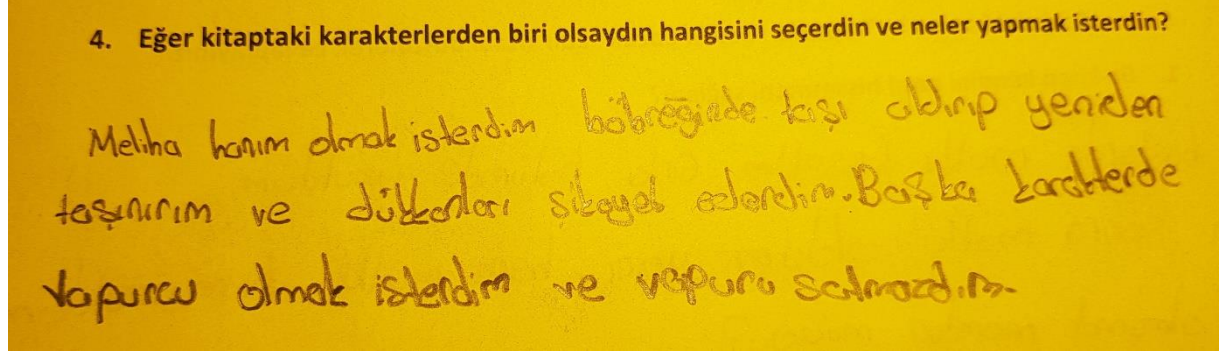 4. Eğer kitaptaki karakterlerden biri olsaydın hangisini seçerdin ve neler yapmak isterdin?
Meliha hanım olmak isterdim böbreğinde taşı aldırıp yeniden
taşınırım ve dükkanları şikayet ederdim. Başka karakterde
Vapurcu olmak isterdim ve vapuru satmazdım.